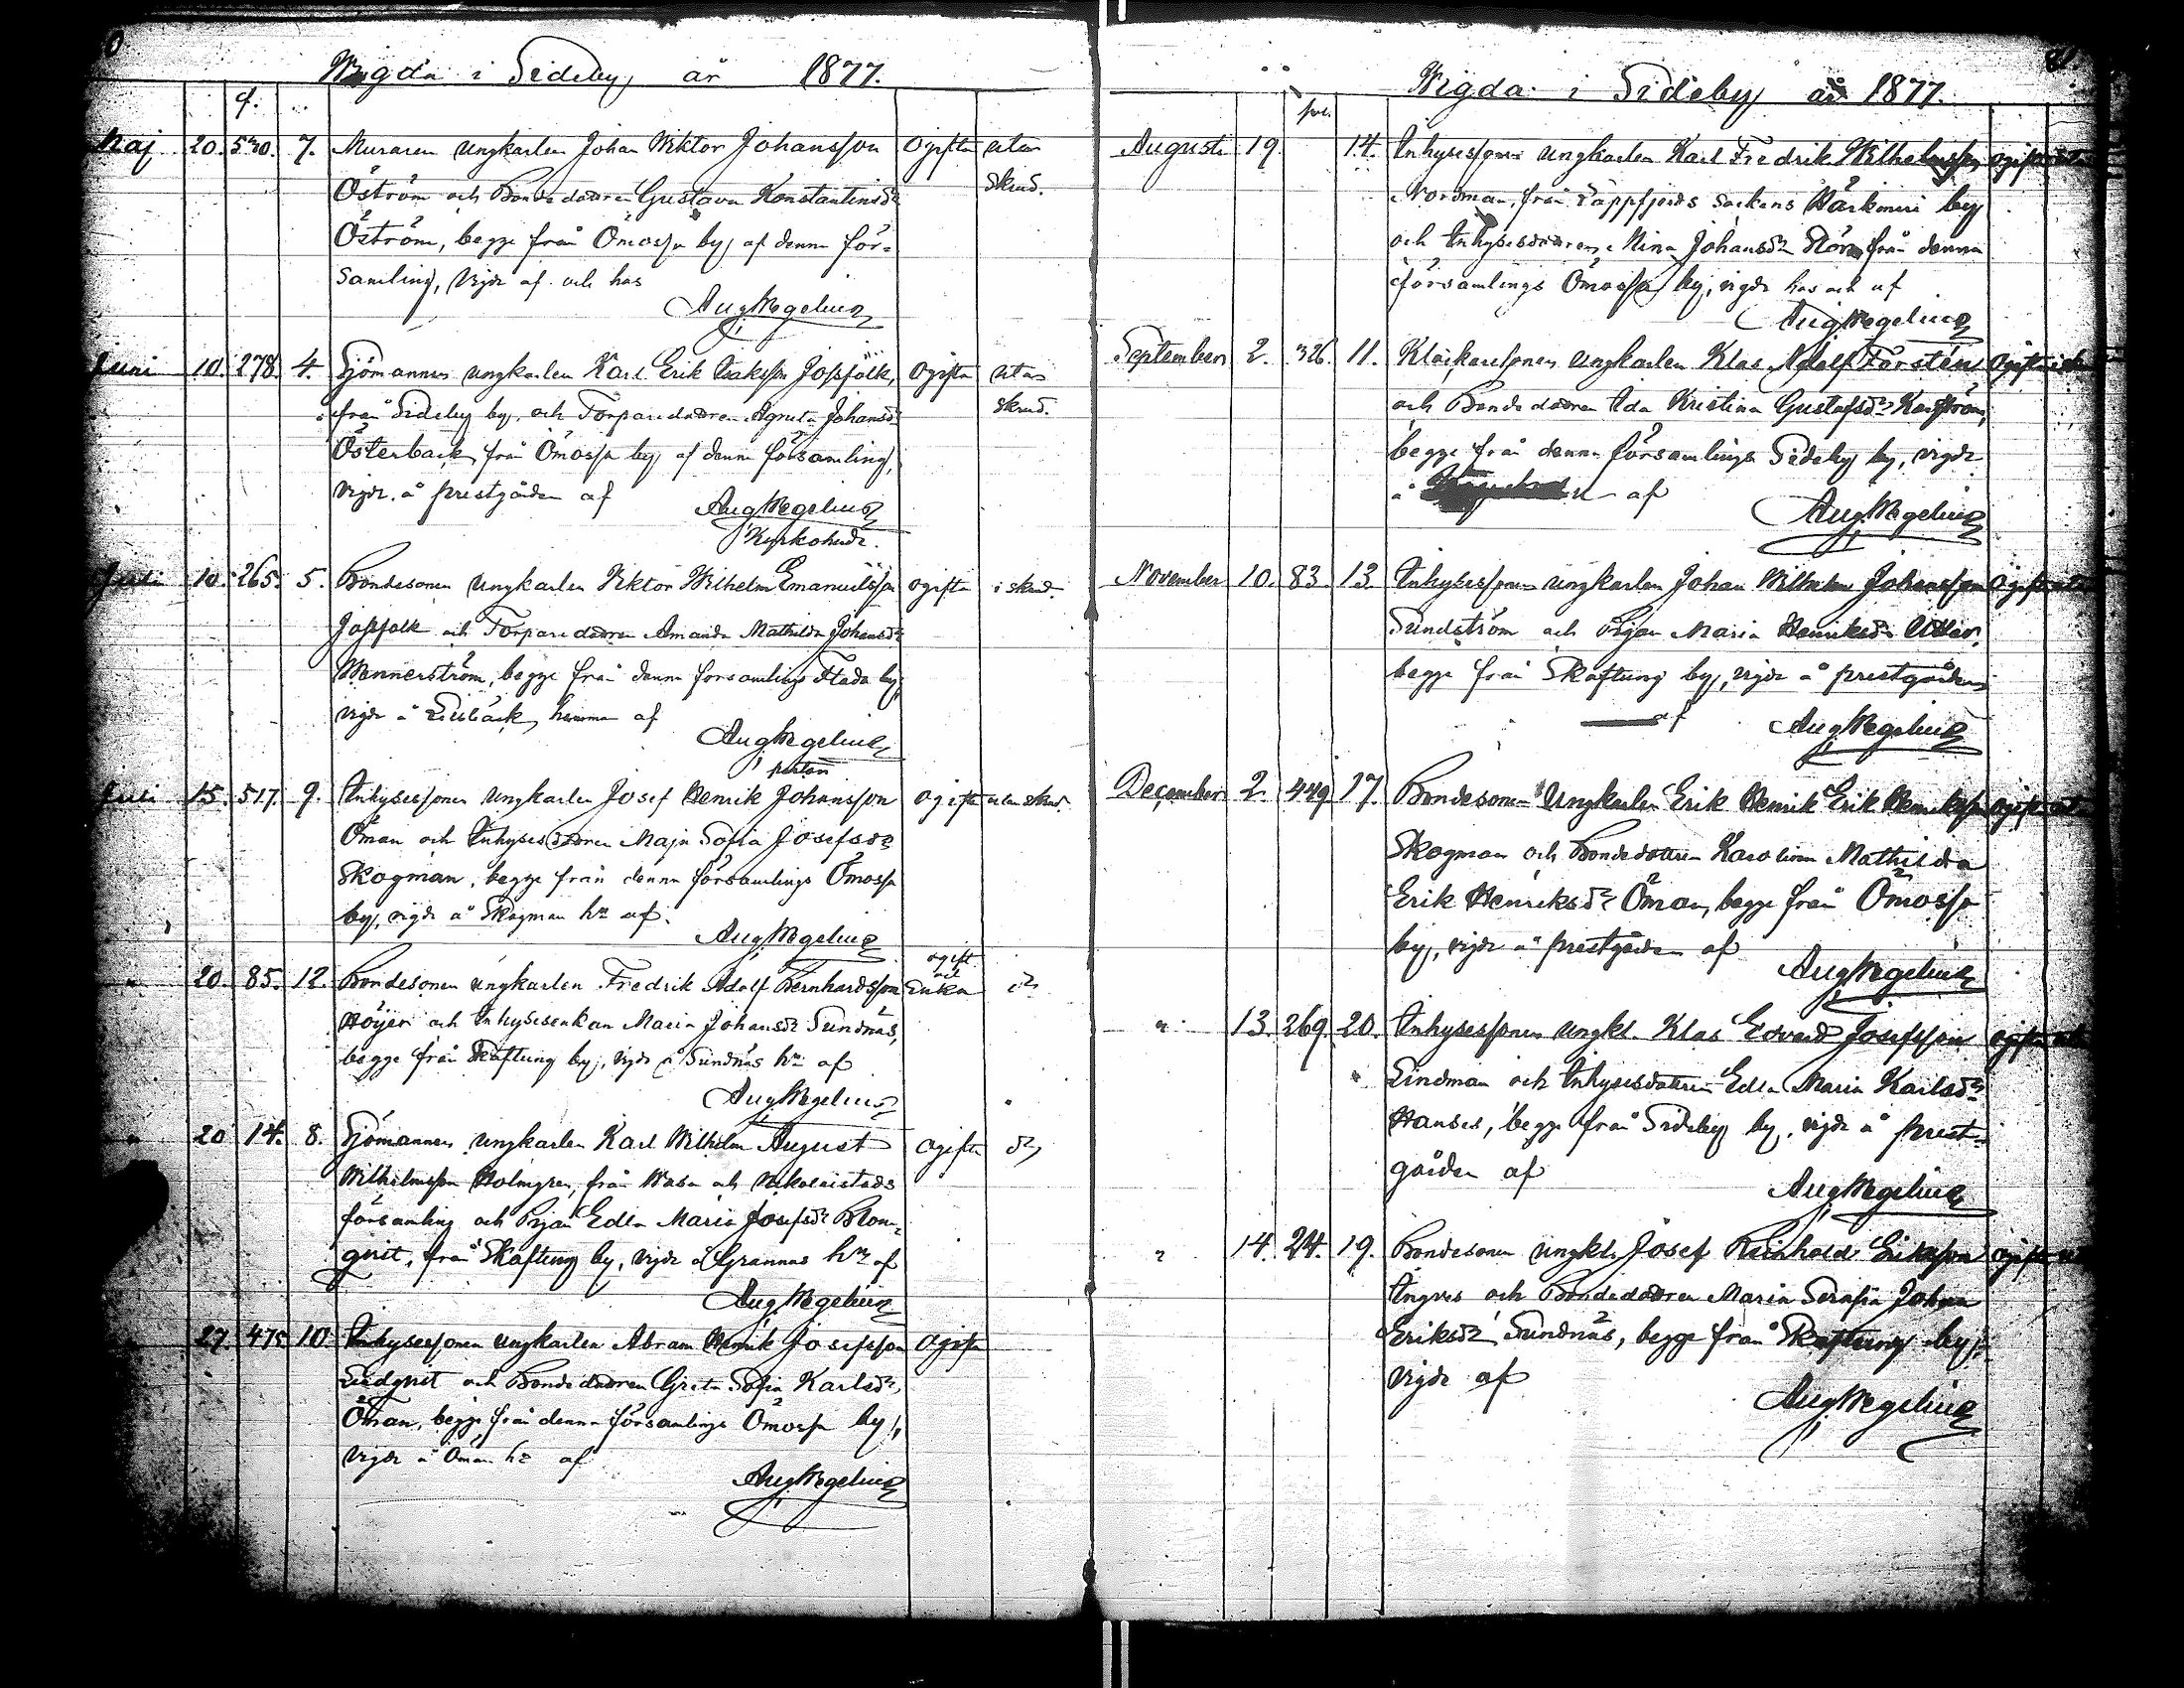 Wigda i Sideby år 1877.
f.
Maj 20. 530. 7. Muraren ungkarlen Johan Wiktor Johansson Ogifta utan
Öström och Bondedottren Gustava Konstantinsdr skrud.
Öström, begge från Ömossa by af denna för-
samling, vigde af och hos
Aug Wegelius
Juni 10. 278. 4. Sjömannen ungkarlen Karl Erik Isaksson Josfolk, Ogifta utan
från Sideby by, och Torparedottren Agneta Johansdr skrud.
Österback, från Ömossa by af denna församling,
vigde å prestgården af
Aug Wegelius
Kyrkoherde.
Juli 10. 265. 5. Bondesonen ungkarlen Viktor Wilhelm Emanuelsson ogifta i skrud.
Josfolk och Torparedottren Amanda Mathilda Johansdr
Wennerström, begge från denna församlings Flada by,
vigde å hemman af
Aug Wegelius
pastor
Juli 15. 517. 9. Inhysessonen ungkarlen Josef Henrik Johansson ogifta utan skrud.
Öman och Inhysesdottren Maja Sofia Josefsdr
Skogman, begge från denna församlings Ömossa
by, vigde å Skogman hn af.
Aug Wegelius
ogift
och
" 20. 85. 12. Bondesonen ungkarlen Fredrik Adolf Bernhardsson Enka dr
Höyer och Inhysesenkan Maria Johansdr Sundnäs,
begge från Skaftung by, vigde å Sundnäs hn af
Aug Wegelius
" 20 14. 8. Sjömannen ungkarlen Karl Wilhelm August Ogifta do
Wilhelmsson Holmgren, från Wasa och Nikolaistads
församling och Pigan Edla Maria Josefsdr Blom-
qvist, från Skaftung by, vigde å Grannas hn af
Aug Wegelius
" 27. 475 10. Inhysessonen ungkarlen Abram Henrik Josefsson Ogifta
Lindqvist och Bondedottren Greta Sofia Karlsdr
Öman, begge från denna församlings Ömossa by,
vigde å Öman hn af
Aug Wegelius
81.
Wigda i Sideby år 1877.
fol.
Augusti 19. 14. Inhysessonen ungkarlen Karl Fredrik Wilhelmsson ogifta
Nordman, från Lappfjerds sockens Härkmeri by
och Inhysesdottren Mina Johansdr Storm från denna
församlings Ömossa by, vigde hos och af
Aug Wegelius
September 2. 326. 11. Klockaresonen ungkarlen Klas Adolf Forstén Ogifta
och Bondedottren Ida Kristina Gustafsdr
begge från denna församlings Sideby by, vigde
å af
Aug Wegelius
November 10. 83. 13. Inhysessonen ungkarlen Johan Wilhelm Johansson Ogifta
Sundström och Pigan Maria Henriksdr Utter,
begge från Skaftung by, vigde å prestgården
af
Aug Wegelius
December 2. 449 17. Bondesonen Ungkarlen Erik Henrik Erik Henriksson ogifta
Skogman och Bondedottren Karolina Mathilda
Erik Henriksdr Öman, begge från Ömossa
by, vigde å prestgården af
Aug Wegelius
" 13. 269. 20. Inhysessonen ungkl. Klas Edvard Josefsson ogifta
Lindman och Inhysesdottren Edla Maria Karlsdr
Hanses, begge från Sideby by, vigde å prest-
gården af
Aug Wegelius
" 14. 24. 19. Bondesonen ungkl. Josef Reinhold Eriksson ogifta
Ingves och Bondedottren Maria Serafia Johan
Eriksdr Sundnäs, begge från Skaftung by,
vigde af
Aug Wegelius